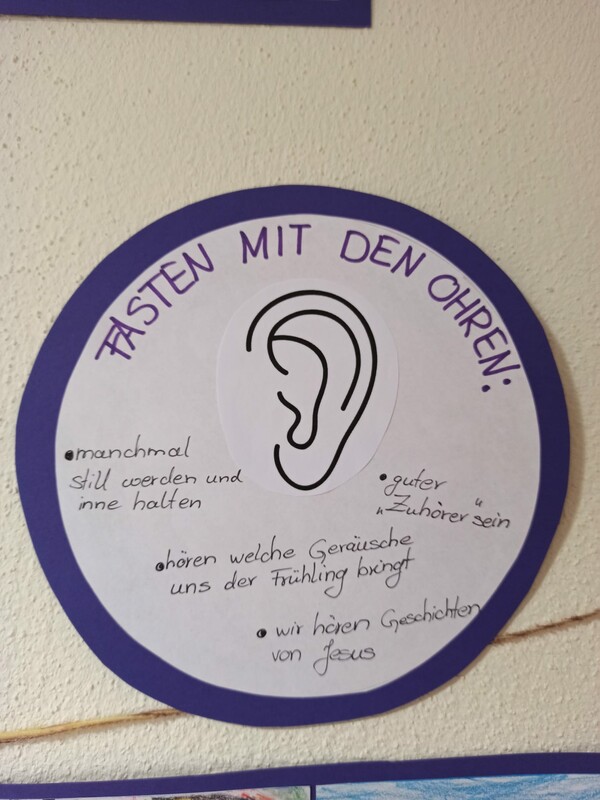 FASTEN MIT DEN OHREN:
• manchmal
still werden und
inne halten
• guter
„Zuhörer“ sein
• hören welche Geräusche
uns der Frühling bringt
• wir hören Geschichten
von Jesus